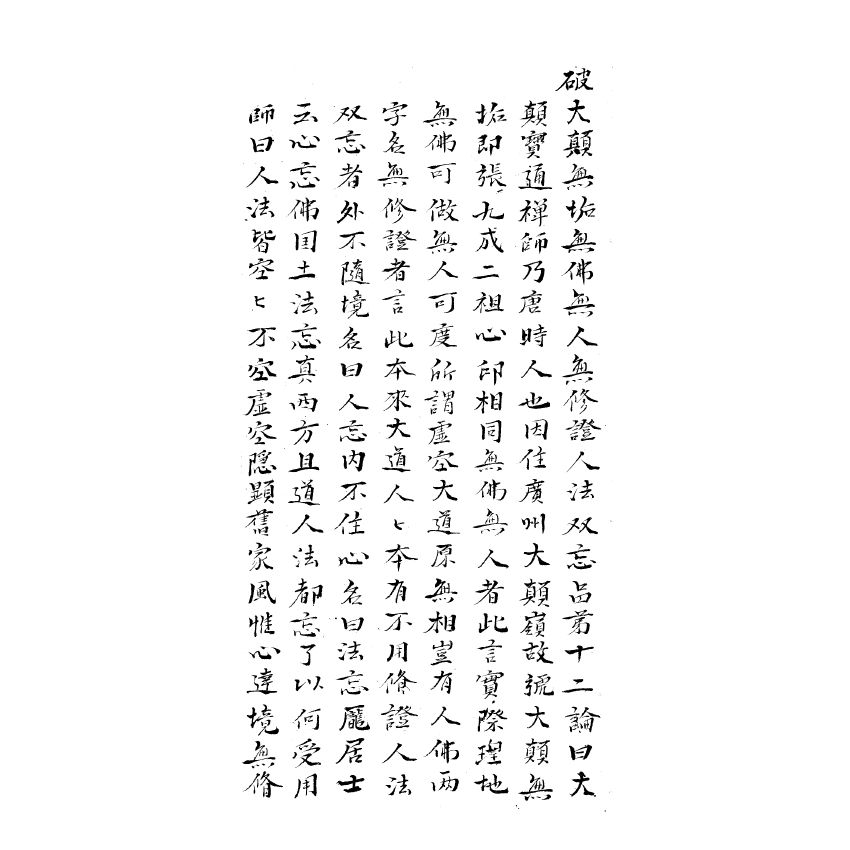 破大顛無垢無佛無人無修證人法双忘品第十二論曰大
顛寶通禅師乃唐時人也因住廣州大顛嶺故號大顛無
垢即張九成二祖心印相同無佛無人者此言實際理地
無佛可做無人可度所謂虛空大道原無相豈有人佛两
字名無修證者言此本來大道人々本有不用修證人法
双忘者外不隨境名曰人忘内不住心名曰法忘龐居士
云心忘佛国土法忘真西方且道人法都忘了以何受用
師曰人法皆空々不空虛空隱顯舊家風惟心達境無脩